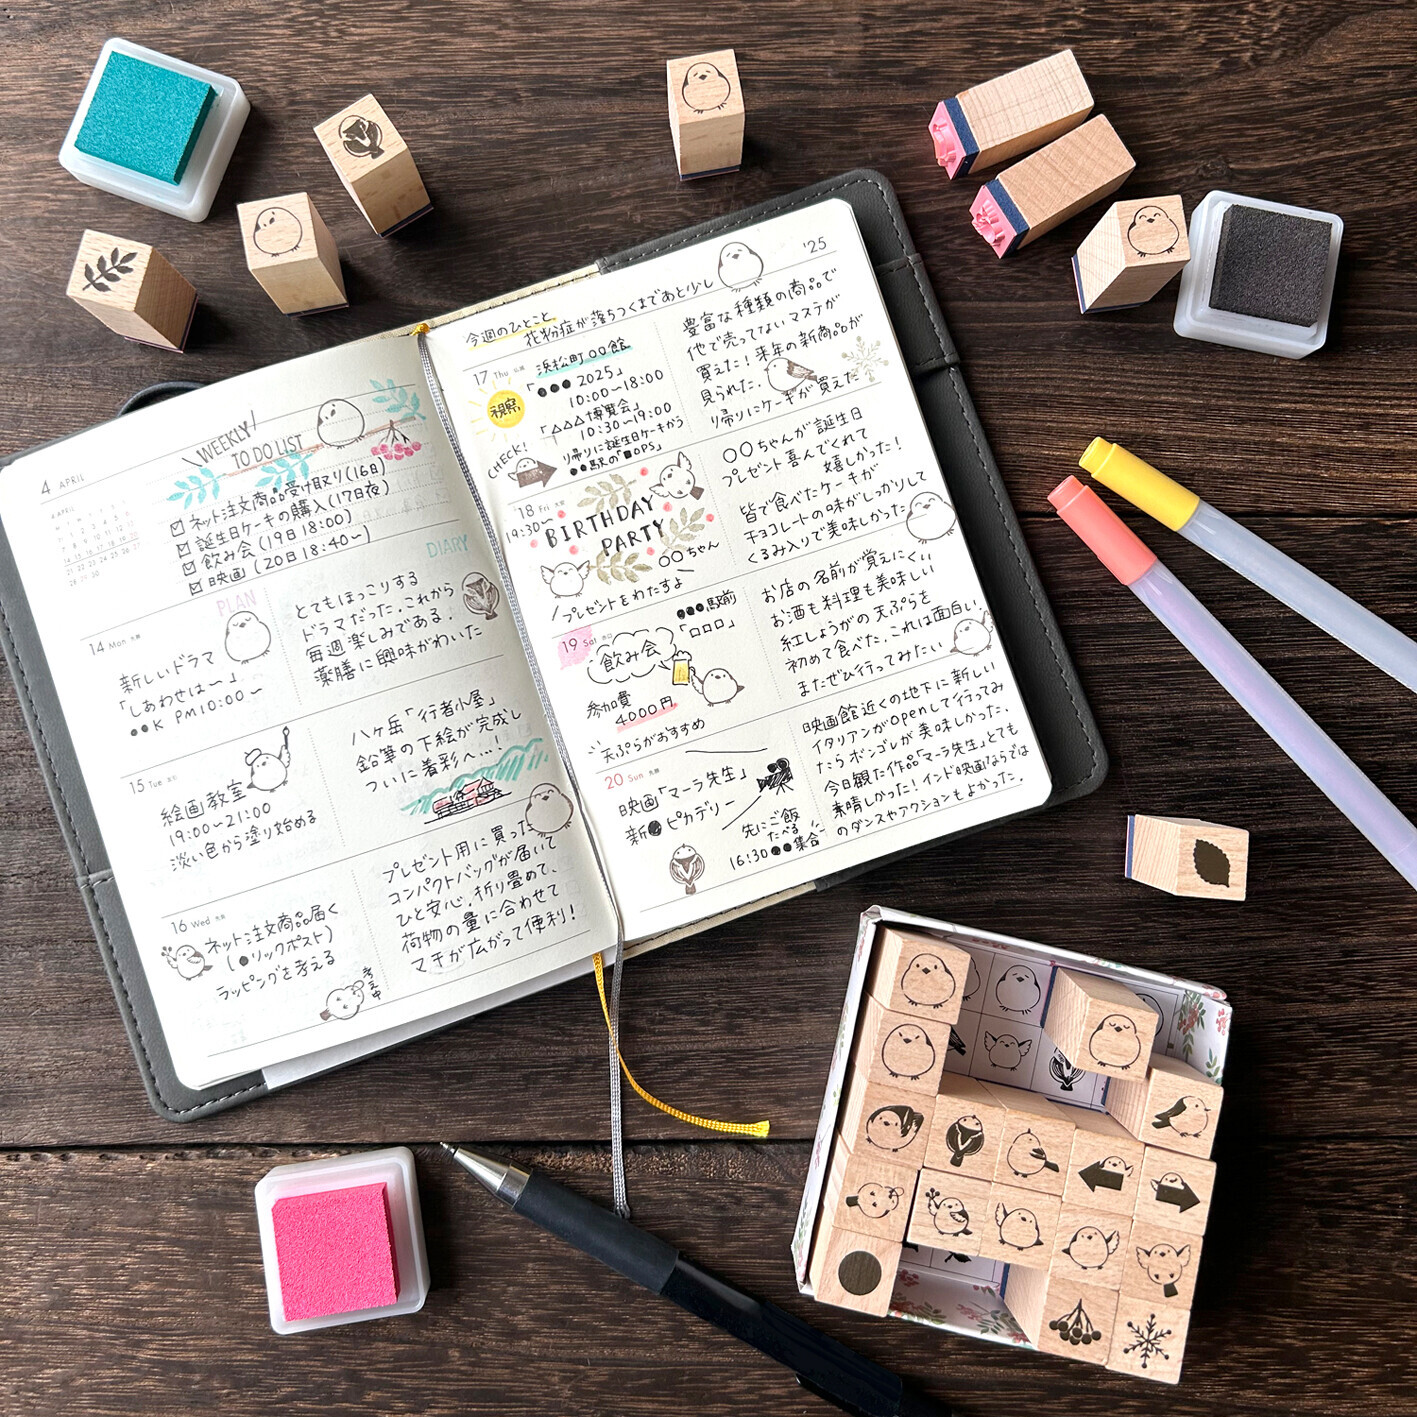 4 APRIL
WEEKLY
TO DO LIST
ネット注文商品受け取り(16日)
誕生日ケーキの購入(17日夜)
飲み会(19日 18:00)
映画(20日 18:40〜)
PLAN
DIARY
14 Mon 先勝
新しいドラマ
「しあわせは〜」
●●K PM10:00〜
とてもほっこりする
ドラマだった。これから
毎週楽しみである。
薬膳に興味がわいた
15 Tue 友引
絵画教室
19:00〜21:00
淡い色から塗り始める
八ヶ岳「行者小屋」
鉛筆の下絵が完成し
ついに着彩へ…!
16 Wed 先負
ネット注文商品届く
(●リックポスト)
ラッピングを考える
考え中
プレゼント用に買った
コンパクトバッグが届いて
ひと安心。折り畳めて、
荷物の量に合わせて
マチが広がって便利!
'25
今週のひとこと
花粉症が落ちつくまであと少し
17 Thu 仏滅
浜松町○○館
視察
「●●● 2025」
10:00〜18:00
「△△△博覧会」
10:30〜19:00
帰りに誕生日ケーキから
●●駅の「■OPS」
CHECK!
豊富な種類の商品で
他で売ってないマステが
買えた!来年の新商品が
見られた。
帰りにケーキが買えた
18 Fri 大安
19:30〜
BIRTHDAY
PARTY
○○ちゃん
プレゼントをわたすよ
○○ちゃんが誕生日
プレゼント喜んでくれて
嬉しかった!
皆で食べたケーキが
チョコレートの味がしっかりして
くるみ入りで美味しかった
19 Sat 赤口
●●●駅前
「□□□」
飲み会
参加費
4000円
天ぷらがおすすめ
お店の名前が覚えにくい
お酒も料理も美味しい
紅しょうがの天ぷらを
初めて食べた。これは面白い。
またぜひ行ってみたい
20 Sun 先勝
映画「マーラ先生」
新● ピカデリー
先にご飯
たべる
16:30●●集合
映画館近くの地下に新しい
イタリアンがOpenして行ってみ
たらボンゴレが美味しかった。
今日観た作品「マーラ先生」とても
素晴しかった!インド映画ならでは
のダンスやアクションもよかった。